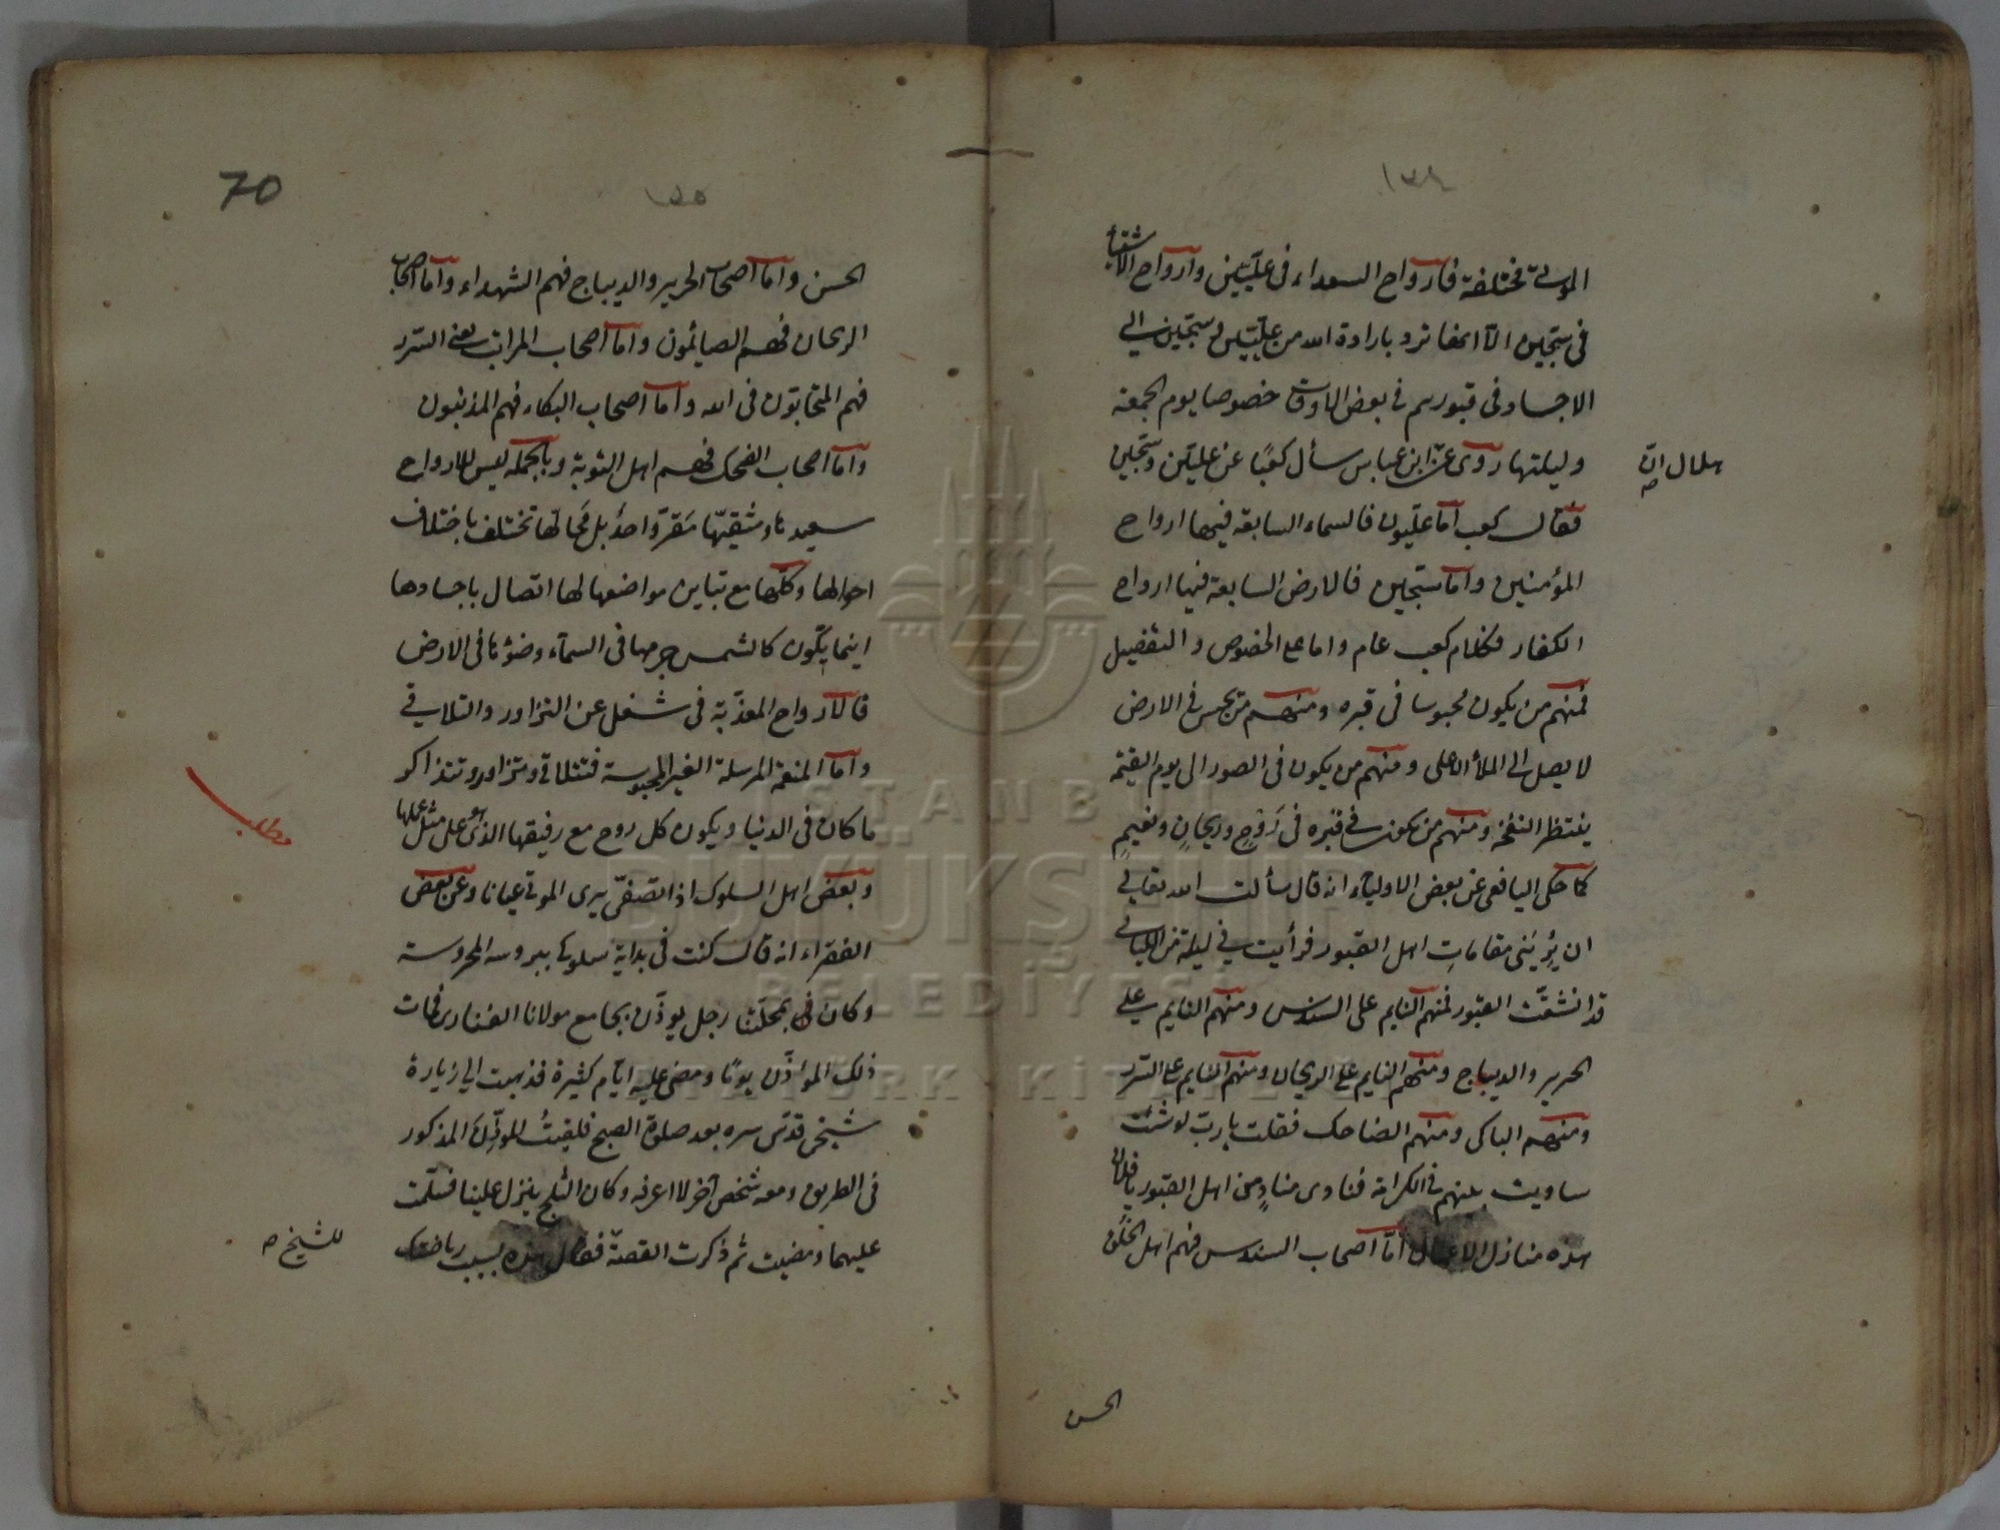 ١٣٩
الموتى مختلفة فارواح السعداء فى عليّين وارواح الاشقياء
فى سجّين الّا انها ترد بارادة الله من عليّين وسجّين الى
الاجساد فى قبورهم فى بعض الاوقات خصوصا يوم الجمعة
وليلتها روى عن ابن عباس سأل كعبًا عن عليّين وسجّين
هلال ان
فقال كعب امّا عليّون فالسماء السابعة فيها ارواح
المؤمنين وامّا سجّين فالارض السابعة فيها ارواح
الكفار فكلام كعب عام واما على الخصوص والتفضيل
فمنهم من يكون محبوسا فى قبره ومنهم من يحبس فى الارض
لا يصل الى الملأ الاعلى ومنهم من يكون فى الصور الى يوم القيمة
ينتظر النفخة ومنهم من يكون فى قبره فى رَوْحٍ وريحانٍ ونعيمٍ
كما حكى اليافعى عن بعض الاولياء انه قال سألت الله تعالى
ان يُرِيَنى مقامات اهل القبور فرأيت فى ليلة من الليالى
قد انشقّت القبور فمنهم النايم على السندس ومنهم النايم على
الحرير والديباج ومنهم النايم على الريحان ومنهم النايم على السّرر
ومنهم الباكى ومنهم الضاحك فقلت يا ربّ لو شئت
ساويت بينهم فى الكرامة فنادى منادٍ من اهل القبور يا فلان
هذه منازل الاعمال امّا اصحاب السندس فهم اهل الخُلُق
الحسن
70
١٥٥
الحسن وامّا اصحاب الحرير والديباج فهم الشهداء وامّا اصحاب
الريحان فهم الصائمون وامّا اصحاب المراتب يعنى السّرر
فهم المتحابّون فى الله وامّا اصحاب البكاء فهم المذنبون
وامّا اصحاب الضحك فهم اهل التوبة وبالجملة ليس للارواح
سعيدها وشقيّها مَقَرّ واحدٌ بل مَحَالّها تختلف باختلاف
احوالها وكلّها مع تباين مواضعها لها اتصال باجسادها
اينما يكون كالشمس جرمها فى السمآء وضوٴها فى الارض
فالارواح المعذّبة فى شغل عن التزاور والتلاقى
وامّا المنعّمة المرسلة الغير المحبوسة فتتلاقى وتتزاور وتتذاكر
ما كان فى الدنيا ويكون كل روح مع رفيقها الذى هو على مثل عملها
مطلب
وبعض اهل السلوك اذا تصفّى يرى الموتى عيانا وعن بعض
الفقراء انه قال كنت فى بداية سلوكى ببروسه المحروسة
وكان فى محلّتنا رجل يوذّن بجامع مولانا الفنارى فمات
ذلك الموٴذّن يومًا ومضى عليه ايّام كثيرة فذهبت الى زيارة
شيخى قدّس سره بعد صلوة الصبح فلقيتُ الموذّنَ المذكور
فى الطريق ومعه شخص آخر لا اعرفه وكان الثلج ينزل علينا فسلّمت
عليهما ومضيت ثم ذكرت القصّة فقال هذه بسبب رياضتك
للشيخ صح